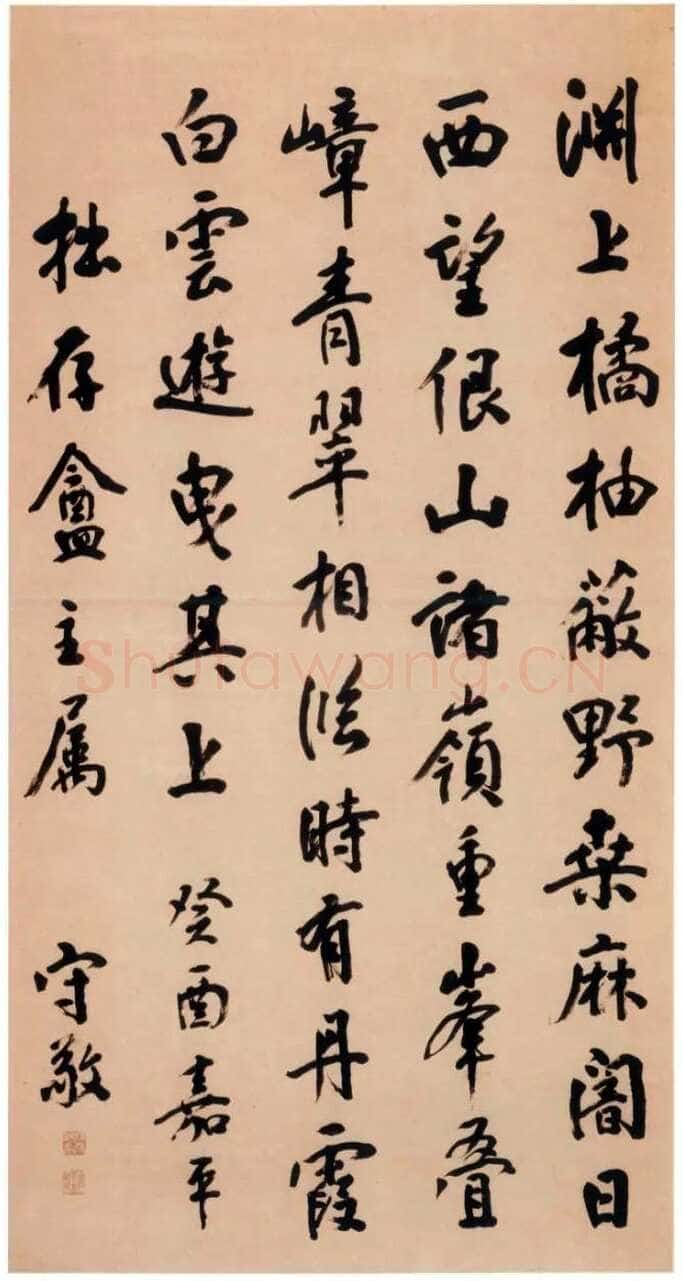 淵上橘柚蔽野桑麻闇日
西望佷山諸嶺重峯叠
嶂青翠相臨時有丹霞
白雲遊曳其上 癸酉嘉平
拙存盦主属 守敬
Shufawang.CN